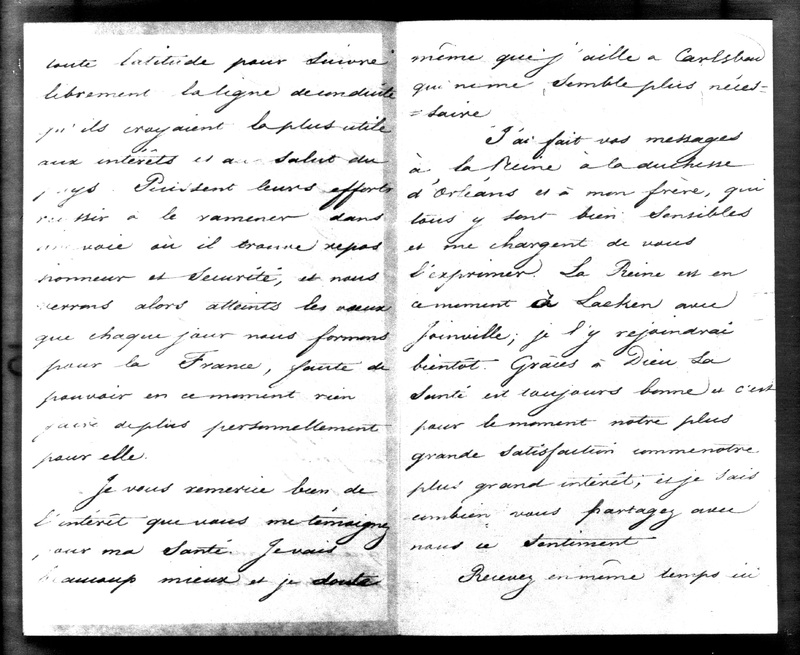 toute latitude pour suivre
librement la ligne de conduite
qu'ils croyaient la plus utile
aux intérêts et au salut du
pays. Puissent leurs efforts
réussir à le ramener dans
une voie où il trouve repos
honneur et sécurité, et nous
verrons alors atteints les vœux
que chaque jour nous formons
pour la France, faute de
pouvoir en ce moment rien
faire de plus personnellement
pour elle.
Je vous remercie bien de
l'intérêt que vous me témoignez
pour ma santé. Je vais
beaucoup mieux et je doute
même que j'aille a Carlsbad
qui ne me semble plus néces=
=saire
J'ai fait vos messages
à la Reine à la duchesse
d'Orléans et à mon frère, qui
tous y sont bien sensibles
et me chargent de vous
l'exprimer. La Reine est en
ce moment à Laeken avec
Joinville; je l'y rejoindrai
bientôt. Grâces à Dieu sa
santé est toujours bonne et c'est
pour le moment notre plus
grande satisfaction comme notre
plus grand intérêt; et je sais
combien vous partagez avec
nous ce sentiment
Recevez en même temps ici